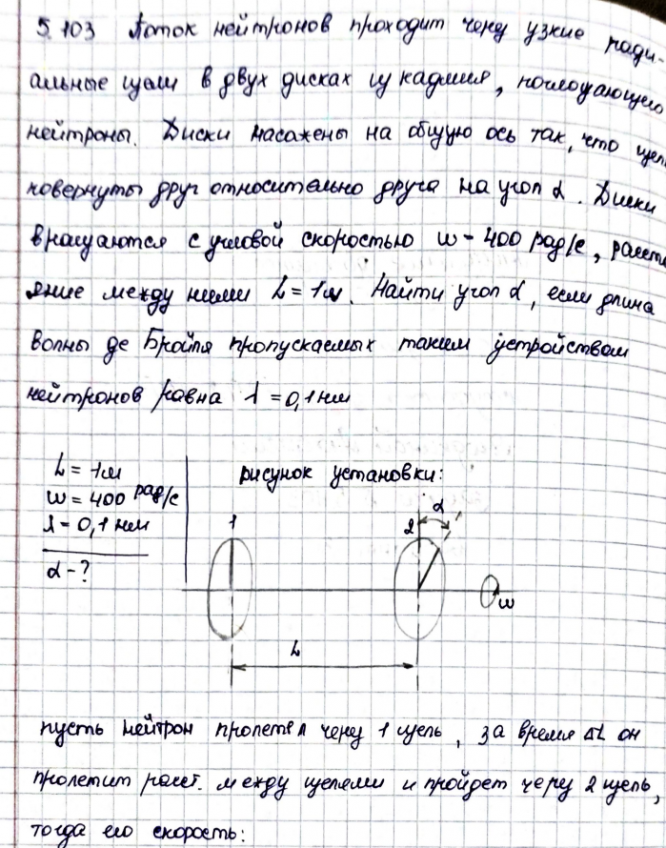 5.103 Поток нейтронов проходит через узкие ради-
альные щели в двух дисках из кадмия, поглощающего
нейтроны. Диски насажены на общую ось так, что щели
повернуты друг относительно друга на угол α. Диски
вращаются с угловой скоростью ω - 400 рад/с, расст
яние между ними L = 1м. Найти угол α, если длина
волны де Бройля пропускаемых таким устройством
нейтронов равна λ = 0,1 нм
L = 1м
ω = 400 рад/с
λ - 0,1 нм
α - ?
рисунок установки:
1
2
α
ω
L
пусть нейтрон пролетел через 1 щель, за время Δt он
пролетит расст. между щелями и пройдет через 2 щель,
тогда его скорость: